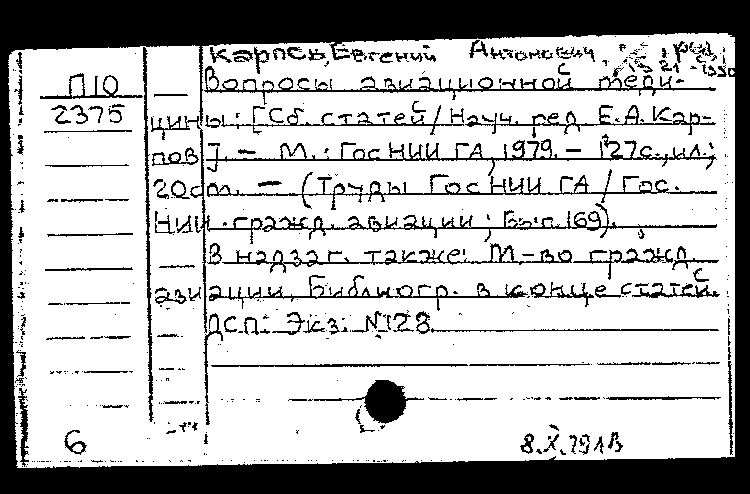 Карпов, Евгений Антонович, ред.
П10 Вопросы авиационной меди-
2375 цины: [Сб. статей / Науч. ред. Е.А. Кар-
пов]. — М.: ГосНИИ ГА, 1979. — 127с., ил.;
20см. — (Труды ГосНИИ ГА / Гос.
НИИ гражд. авиации; Вып. 169).
В надзаг. также: М-во гражд.
авиации. Библиогр. в конце статей.
ДСП: Экз. №128
6 8.X.79